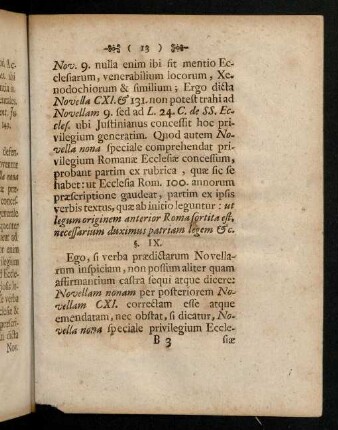 ( 13 )
Nov. 9. nulla enim ibi sit mentio Ec-
clesiarum, venerabilium locorum, Xe-
nodochiorum & similium; Ergo dicta
Novella CXI. & 131. non potest trahi ad
Novellam 9. sed ad L. 24. C. de SS. Ec-
cles. ubi Justinianus concessit hoc pri-
vilegium generatim. Quod autem No-
vella nona speciale comprehendat pri-
vilegium Romanæ Ecclesiæ concessum,
probant partim ex rubrica, quæ sic se
habet: ut Ecclesia Rom. 100. annorum
præscriptione gaudeat, partim ex ipsis
verbis textus, quæ ab initio leguntur: ut
legum originem anterior Roma sortita est,
necessarium duximus patriam legem &c.
§. IX.
Ego, si verba prædictarum Novella-
rum inspicium, non possum aliter quam
affirmantium castra sequi atque dicere:
Novellam nonam per posteriorem No-
vellam CXI. correctam esse atque
emendatam, nec obstat, si dicatur, No-
vella nona speciale privilegium Eccle-
B 3 siæ